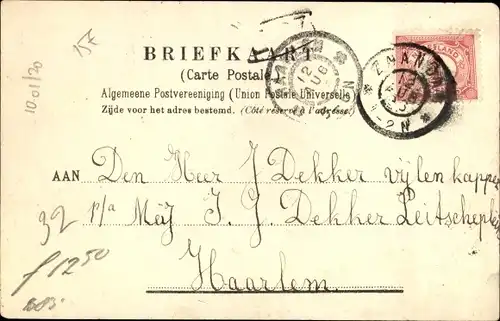 BRIEFKAART
(Carte Postale)
Algemeene Postvereeniging (Union Postale Universelle)
Zijde voor het adres bestemd. (Côté réservé à l'adresse.)
ZAANDAM
12
4-2N
AAN Den Heer J Dekker vijlenkapper
p/a Mej T. J. Dekker
Haarlem.
10.01/20
32
f 1250